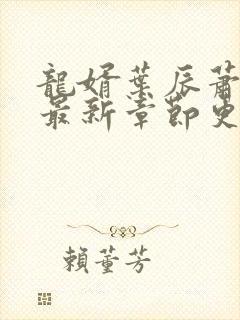 龍婿葉辰蕭
最新章節更
賴董芳